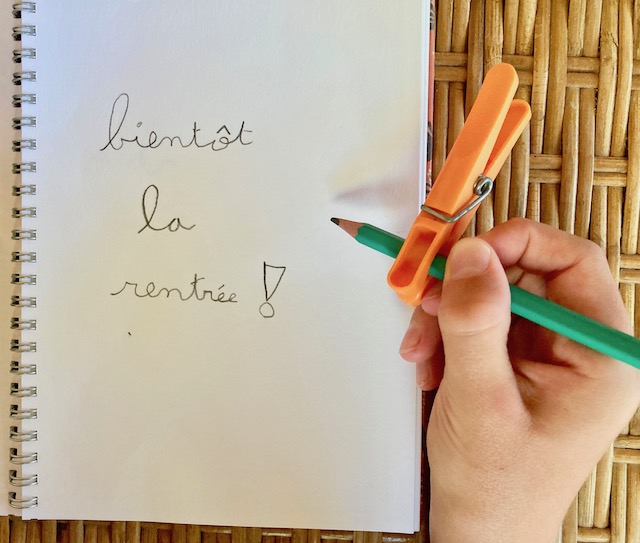 bientôt
la
rentrée !